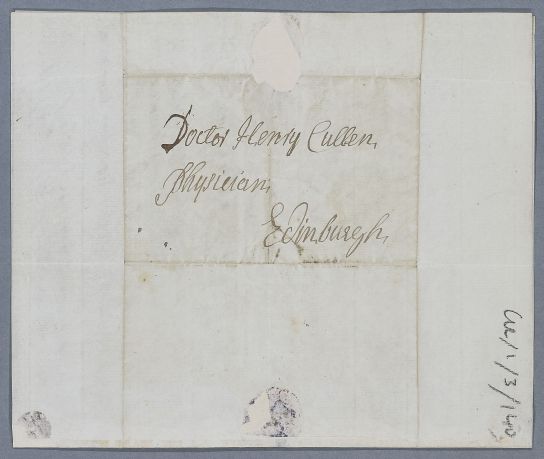 Doctor Henry Cullen,
Physician,
Edinburgh,
CUL/1/3/140